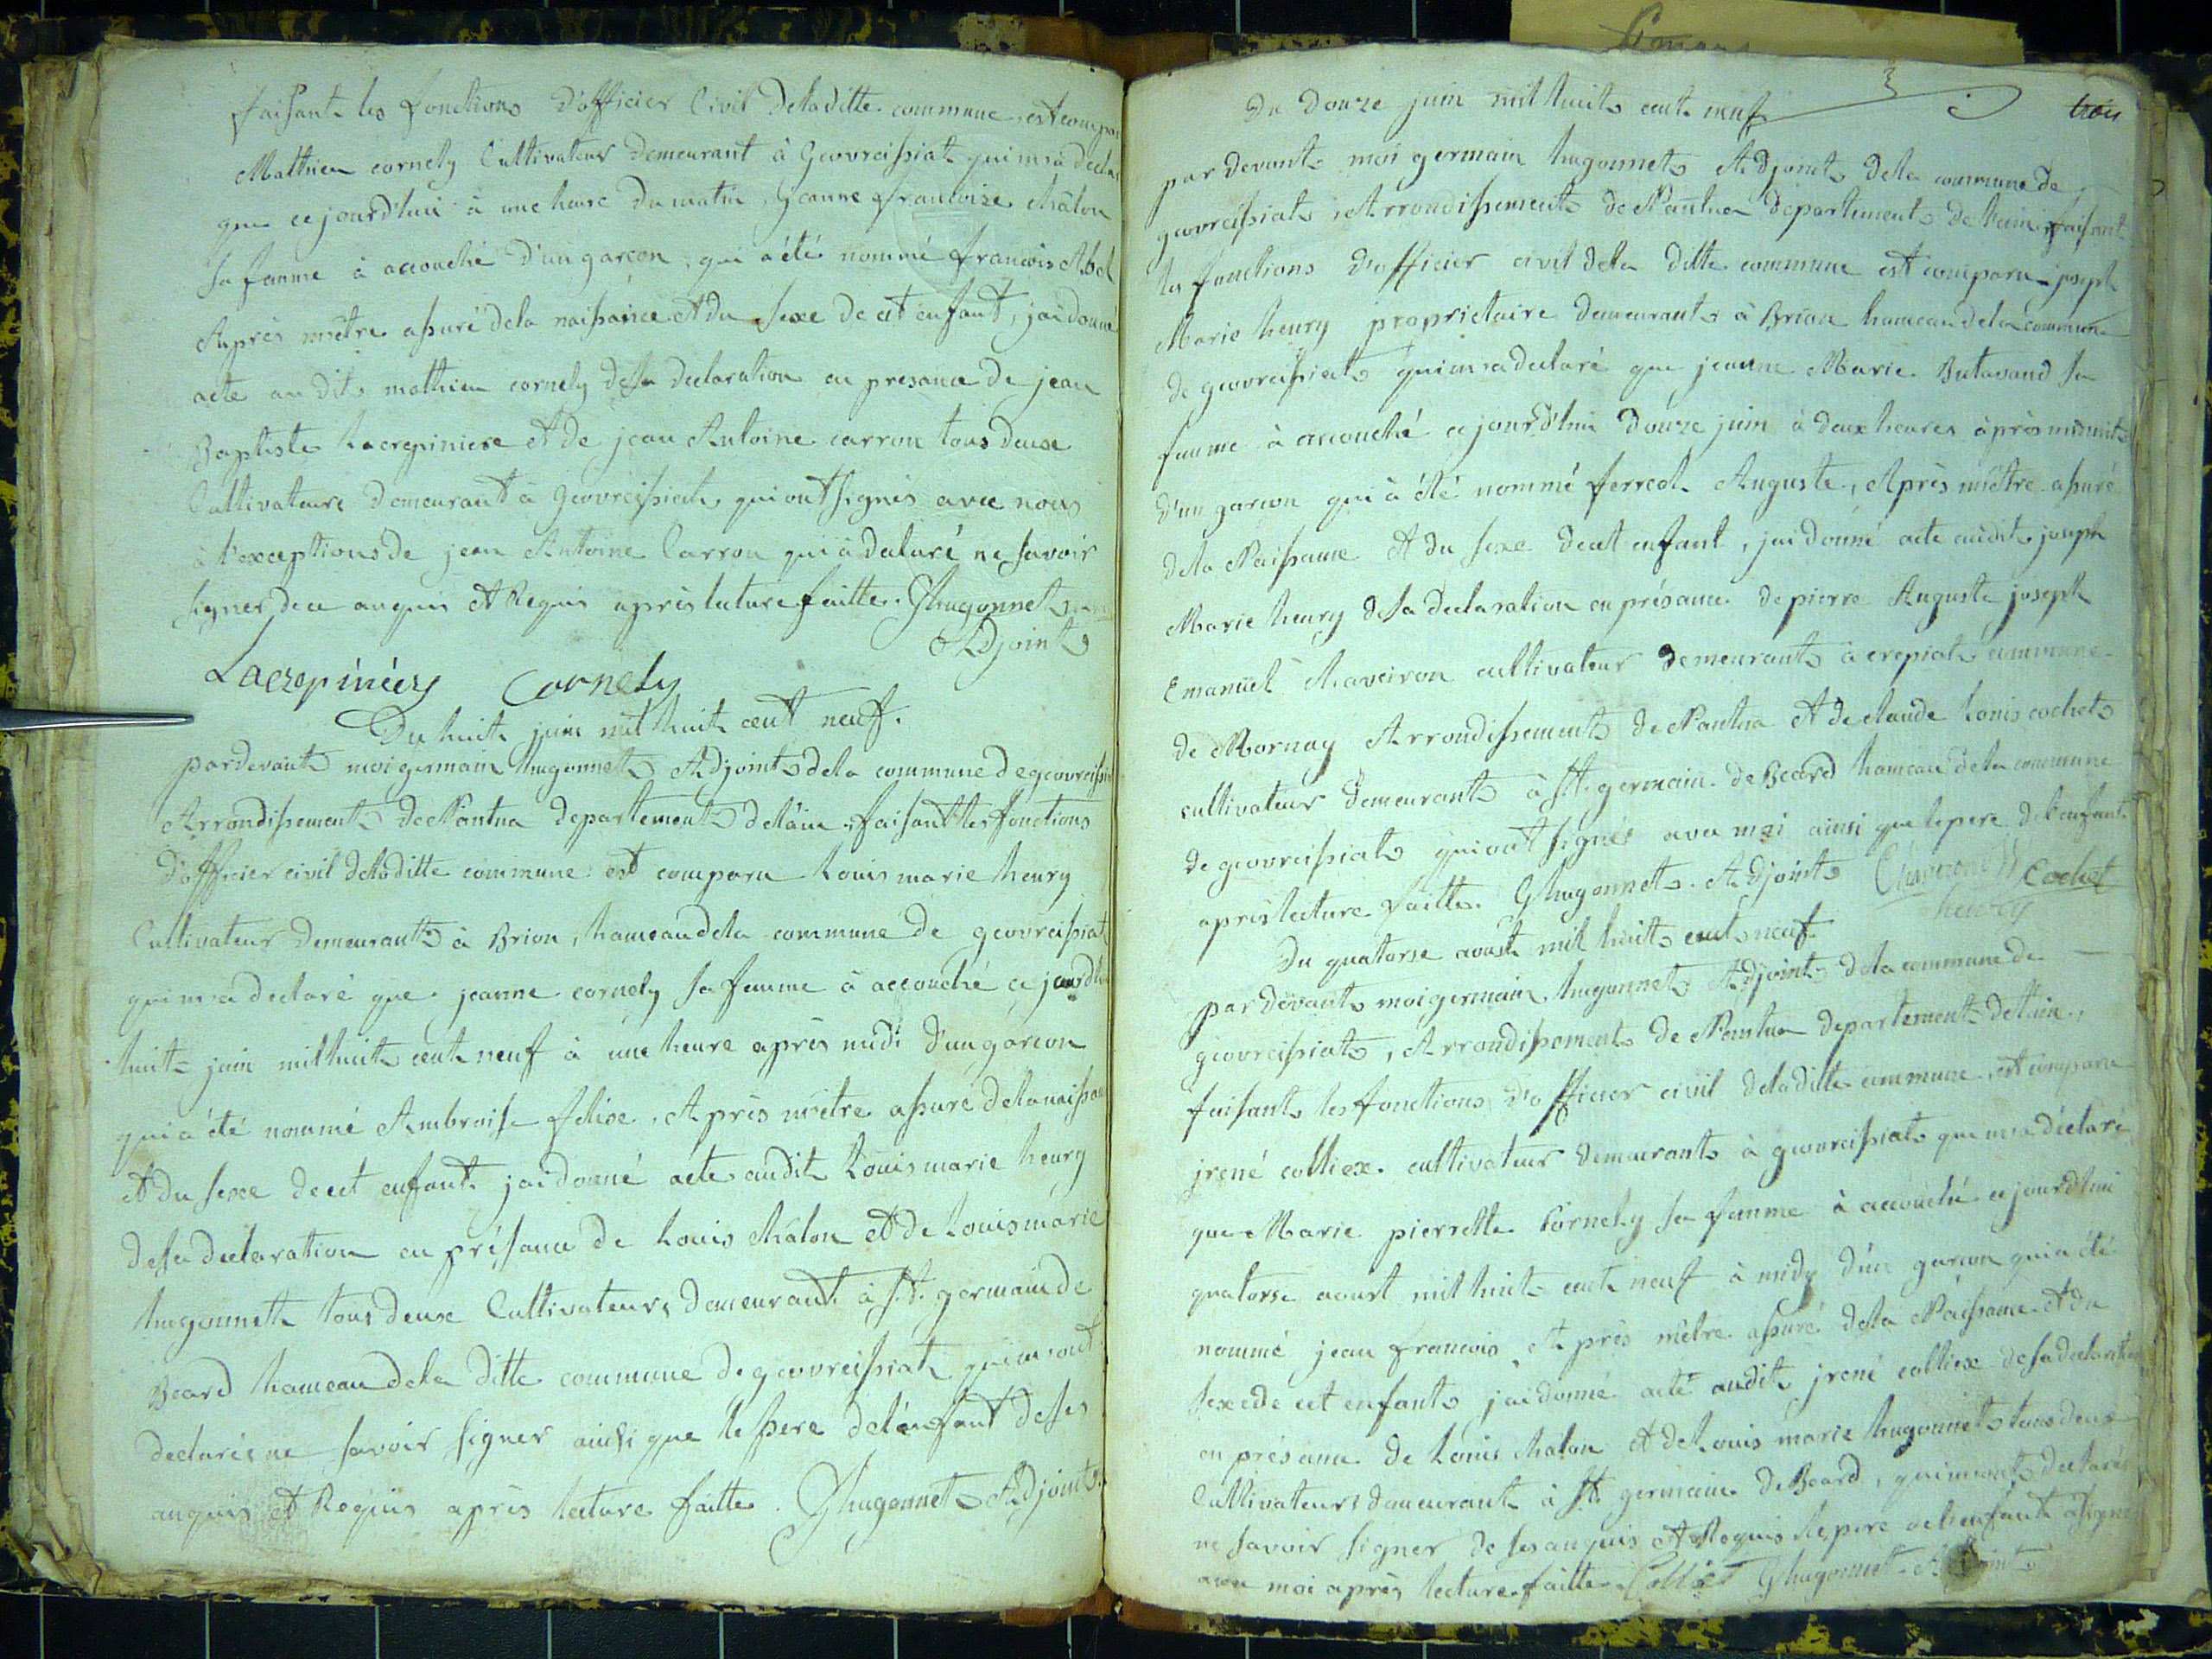 faisant les fonctions D'officier Civil dela ditte commune, est comparu
Mathieu cornely Cultivateur Demeurant à Geovreissiat qui m'a declaré
que cejourd'hui à une heure Du matin, Jeanne francoise châlon
sa femme à accouché D'un garcon, qui a été nommé francois Abel
Après m'être assuré dela naissance et du sexe de cet enfant, jai donné
acte au dit mathieu cornely desa declaration en presance de jean
Baptiste Lacrepiniere et de jean Antoine carron tous deux
Cultivateurs Demeurant à Geovreissiat, qui ont signés avec nous
à l'exceptions de jean Antoine Carron qui à declaré ne savoir
signer, de ce anquis et Requis après lecture faitte. Ghugonnet
Adjoint
Lacrepiniery Cornely
Du huit juin mil huit cent neuf.
pardevant moi germain hugonnet Adjoint dela commune de geovreissiat
Arrondissement de Nantua departement de l'ain, faisant les fonctions
D'officier civil deladitte commune est comparu Louis marie henry
Cultivateur Demeurant à Brion, hameau dela commune de geovreissiat
qui m'a declaré que jeanne cornely sa femme à accouché ce jourd'hui
huit juin mil huit cent neuf à une heure après midi D'un garcon
qui a été nommé Ambroise felix, Après m'être assuré dela naissance
et du sexe de cet enfant jai donné acte audit Louis marie henry
desa declaration en présance de Louis châlon et de Louis marie
hugonnet tous deux Cultivateurs demeurant à St. germain de
Beard hameau dela ditte commune de geovreissiat qui m'ont
declarés ne savoir signer ainsi que le pere del'enfant de ses
anquis et Requis après lecture faitte. Ghugonnet Adjoint.
3
trois
Du Douze juin mil huit cent neuf
par devant moi germain hugonnet Adjoint dela commune de
geovreissiat, Arrondissement de Nantua departement de l'ain, faisant
les fonctions d'officier civil dela ditte commune est comparu joseph
Marie henry proprietaire demeurant à Brion hameau dela commune
de geovreissiat qui m'a declaré que jeanne Marie Butavand sa
femme à accouché cejourd'hui Douze juin à deux heures après minuit
d'un garcon qui à été nommé ferreol Auguste, Après m'être assuré
dela Naissance et du sexe de cet enfant, jai donné acte audit joseph
Marie henry desa declaration en présance de pierre Auguste joseph
Emanuël Chaveiron cultivateur demeurant à crepiat commune
de Mornay Arrondissement de Nantua et de claude Louis cochet
cultivateur demeurant à St. germain de Beard hameau dela commune
de geovreissiat qui ont signés avec moi ainsi que le pere del'enfant
après lecture faitte. Ghugonnet Adjoint Chaveiron Cochet
henry
Du quatorse aoust mil huit cent neuf.
par devant moi germain hugonnet Adjoint dela commune de
géovreissiat, Arrondissement de Nantua departement de l'ain,
faisant les fonctions d'officier civil deladitte commune, est comparu
jrené colliex cultivateur demeurant à géovreissiat qui m'a déclaré
que Marie pierrette Cornely sa femme à accouché cejourd'hui
quatorse aoust mil huit cent neuf à midy d'un garcon qui a été
nommé jean francois, Après m'être assuré dela Naissance et du
sexe de cet enfant jai donné acte audit jrené colliex desa declaration
en présance de Louis chalon et de Louis marie hugonnet tous deux
Cultivateurs demeurant à St. germain de Beard, qui m'ont declarés
ne savoir signer de ses anquis et Requis le pere del'enfant à signé
avec moi après lecture faitte. Colliex Ghugonnet Adjoint